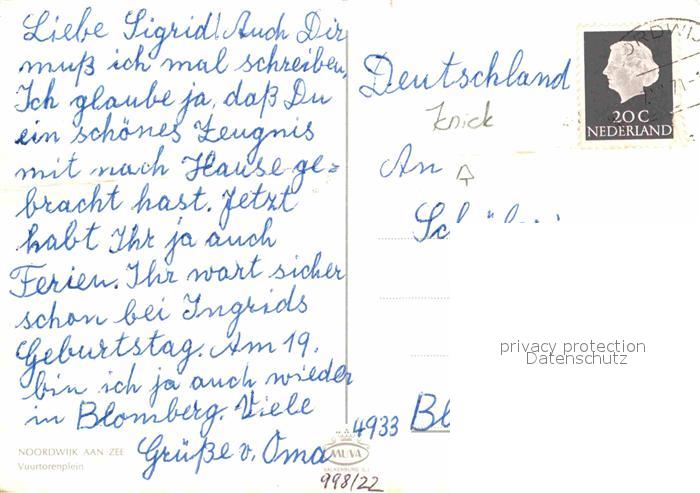 Liebe Sigrid! Auch Dir
muß ich mal schreiben,
Ich glaube ja, daß Du
ein schönes Zeugnis
mit nach Hause ge=
bracht hast. Jetzt
habt Ihr ja auch
Ferien. Ihr wart sicher
schon bei Ingrids
Geburtstag. Am 19.
bin ich ja auch wieder
in Blomberg. Viele
Grüße v. Oma
NOORDWIJK AAN ZEE
Vuurtorenplein
MUVA
VALKENBURG
998/22
Deutschland
Knick
An
4933
20 C
NEDERLAND
71
privacy protection
Datenschutz